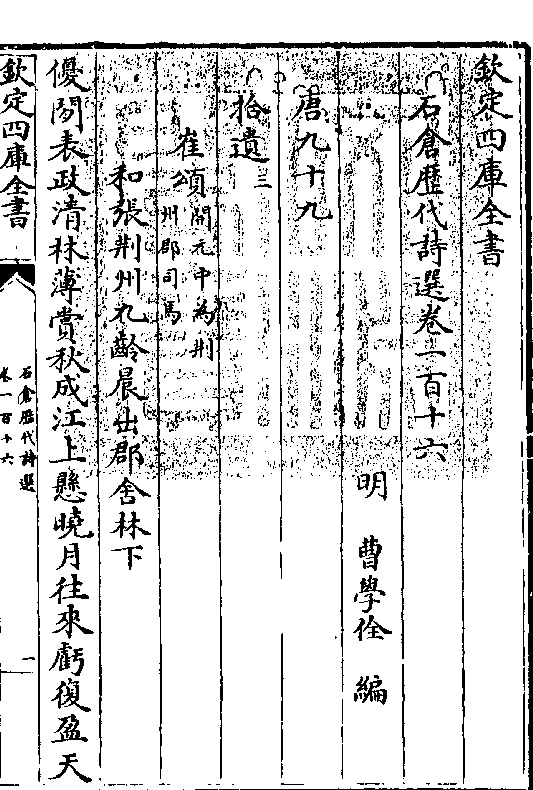 欽定四庫全書
石倉歷代詩選卷一百十六
明 曹學佺 編
唐九十九
拾遺三
崔頌 開元中為荆
州郡司馬
和張荆州九齡晨出郡舍林下
優閒表政清林薄賞秋成江上懸曉月往來虧復盈天
欽定四庫全書
石倉歷代詩選
卷一百十六
一